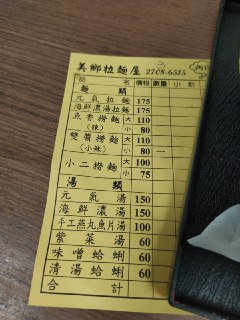 美鄉拉麵屋 2708-6515
名 價格 數量 小計
麵類
元氣拉麵 175
海鮮濃湯拉麵 175
魚香撈麵 大 110
(辣) 小 80
雙醬撈麵 大 110
(小辣) 小 80
小二撈麵 大 100
小 75
湯類
元氣湯 150
海鮮濃湯 150
手工燕丸魚片湯 100
紫菜湯 60
味噌蛤蜊 60
清湯蛤蜊 60
合計